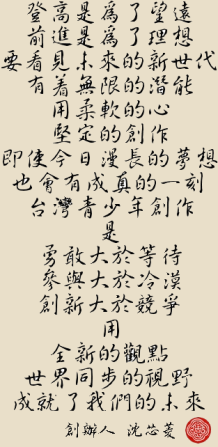 登高是為了望遠
前進是為了理想
要看見未來的新世代
有着無限的潛能
用柔軟的心
堅定的創作
即使今日漫長的夢想
也會有成真的一刻
台灣青少年創作
是
勇敢大於等待
參與大於冷漠
創新大於競爭
用
全新的觀點
世界同步的視野
成就了我們的未來
創辦人 沈芯菱